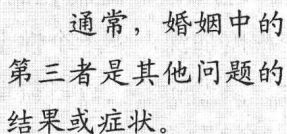 通常，婚姻中的
第三者是其他问题的
结果或症状。